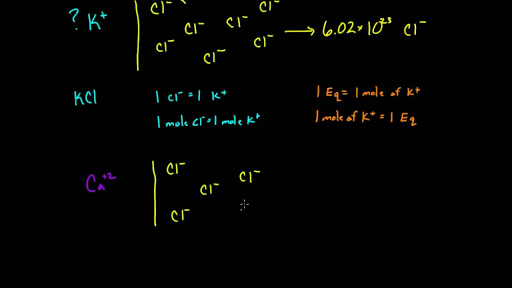 ? K⁺ Cl⁻ Cl⁻ Cl⁻ Cl⁻ Cl⁻ Cl⁻ Cl⁻ → 6.02×10²³ Cl⁻
KCl 1 Cl⁻ = 1 K⁺ 1 Eq = 1 mole of K⁺
1 mole Cl⁻ = 1 mole K⁺ 1 mole of K⁺ = 1 Eq
Ca⁺² Cl⁻ Cl⁻ Cl⁻
Cl⁻